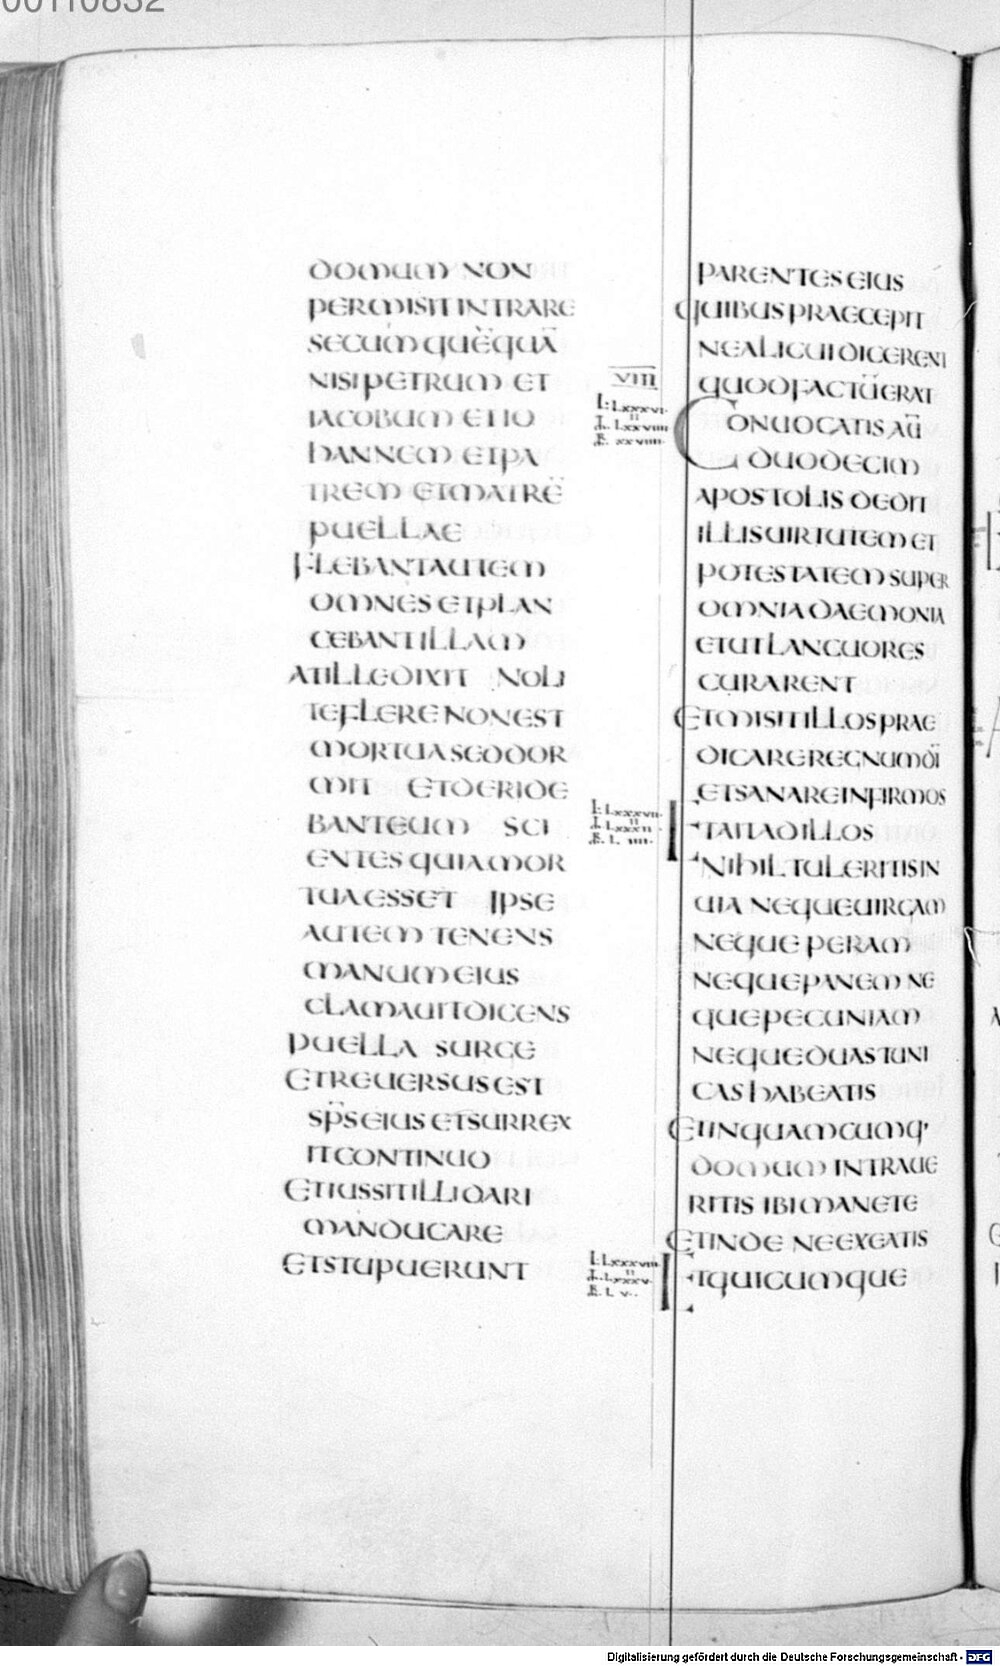 00110832
DOMUM NON
PERMISIT INTRARE
SECUM QUEQUĀ
NISI PETRUM ET
IACOBUM ET IO
HANNEM ET PA
TREM ET MATRĒ
PUELLAE
FLEBANT AUTEM
OMNES ET PLAN
GEBANT ILLAM
AT ILLE DIXIT NOLI
TE FLERE NON EST
MORTUA SED DOR
MIT ET DERIDE
BANT EUM SCI
ENTES QUIA MOR
TUA ESSET IPSE
AUTEM TENENS
MANUM EIUS
CLAMAUIT DICENS
PUELLA SURGE
ET REUERSUS EST
SP̄S EIUS ET SURREX
IT CONTINUO
ET IUSSIT ILLI DARI
MANDUCARE
ET STUPUERUNT
PARENTES EIUS
QUIBUS PRAECEPIT
NE ALICUI DICERENT
QUOD FACTŪ ERAT
VIIII
L. LXXXVI.
II
CONUOCATIS AŪ
DUODECIM
APOSTOLIS DEDIT
ILLIS UIRTUTEM ET
POTESTATEM SUPER
OMNIA DAEMONIA
ET UT LANGUORES
CURARENT
ET MISIT ILLOS PRAE
DICARE REGNUM DĪ
ET SANARE INFIRMOS
L. LXXXVII.
II
ET AIT AD ILLOS
NIHIL TULERITIS IN
UIA NEQUE UIRGAM
NEQUE PERAM
NEQUE PANEM NE
QUE PECUNIAM
NEQUE DUAS TUNI
CAS HABEATIS
ET IN QUAMCUMQ·
DOMUM INTRAUE
RITIS IBI MANETE
ET INDE NE EXEATIS
L. LXXXVIII.
II
ET QUICUMQUE
Digitalisierung gefördert durch die Deutsche Forschungsgemeinschaft - DFG